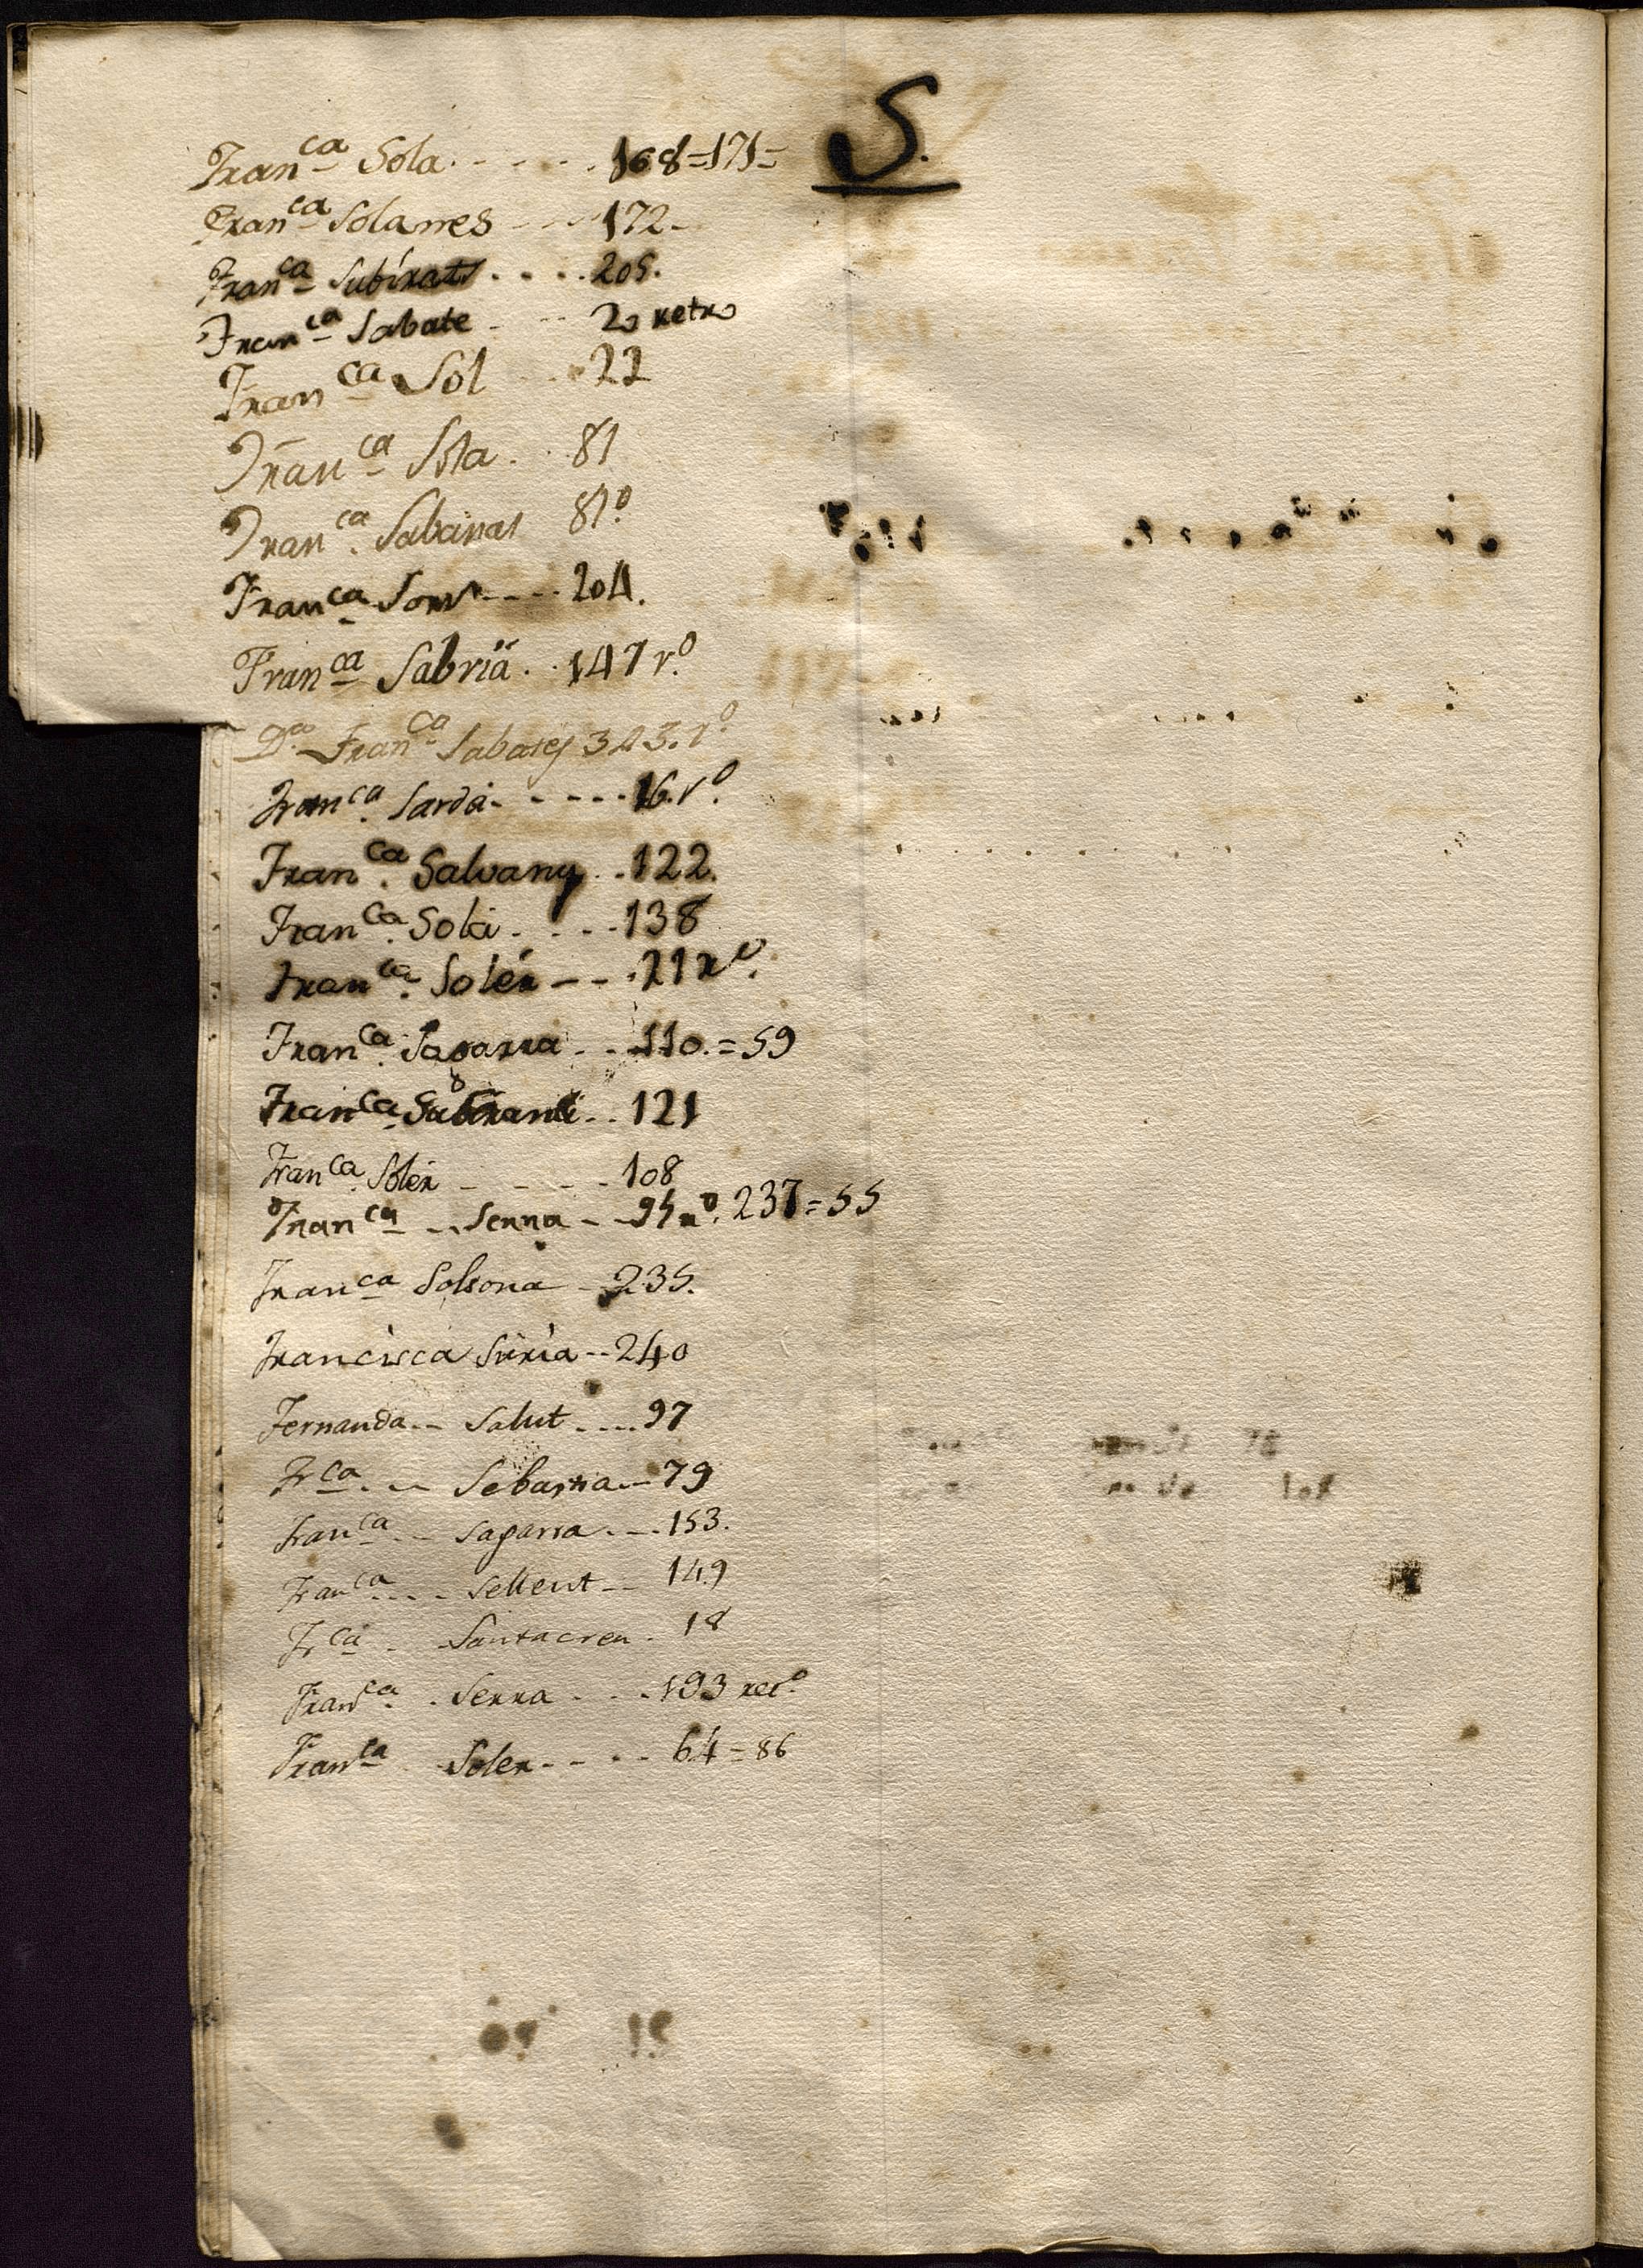 S.
Fran.ca Sola - - - - 168=171=
Fran.ca Solanes - - - 172-
Fran.ca Subirats . . . . 205.
Fran.ca Sabate - - - 20 retro
Fran.ca Sol . . . 22
Fran.ca Sola . . 81
Fran.ca 81.o
Fran.ca - - - - 204.
Fran.ca Sabriá . . 147 r.o
D.a Fran.ca 323. r.o
Fran.ca Sardá - - - - - 16. r.o
Fran.ca Salvany . . 122.
Fran.ca Solá . . . - 138
Fran.ca Solér - - . 21 r.o
Fran.ca Sagarra . . . 110. = 59
Fran.ca . . 121
Fran.ca Solér - - - - 108
Fran.ca - . Serra - - r.o 237 = 55
Fran.ca Solsona - 235.
Francisca Siria - - 240
Fernanda - - Salut . . . . 97
Fr.ca . - - Sebastia - - 79
Fran.ca . - Sagarra . - . 153.
Fran.ca . . . - Sellent - - 149
Fr.ca - - Santacreu - 18
Fran.ca . Serra - . . - 193 ret.o
Fran.ca . Soler - - . - 64 = 86